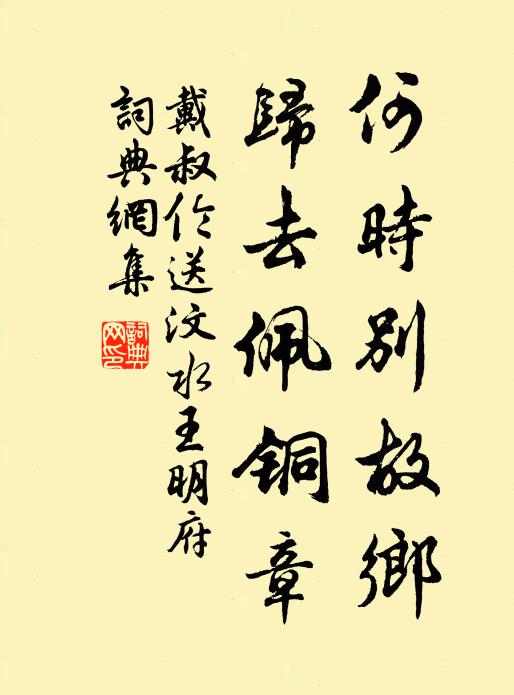 何時別故鄉
歸去佩銅章
戴叔伦送汶水王明府
詞典網集
詞典
网印